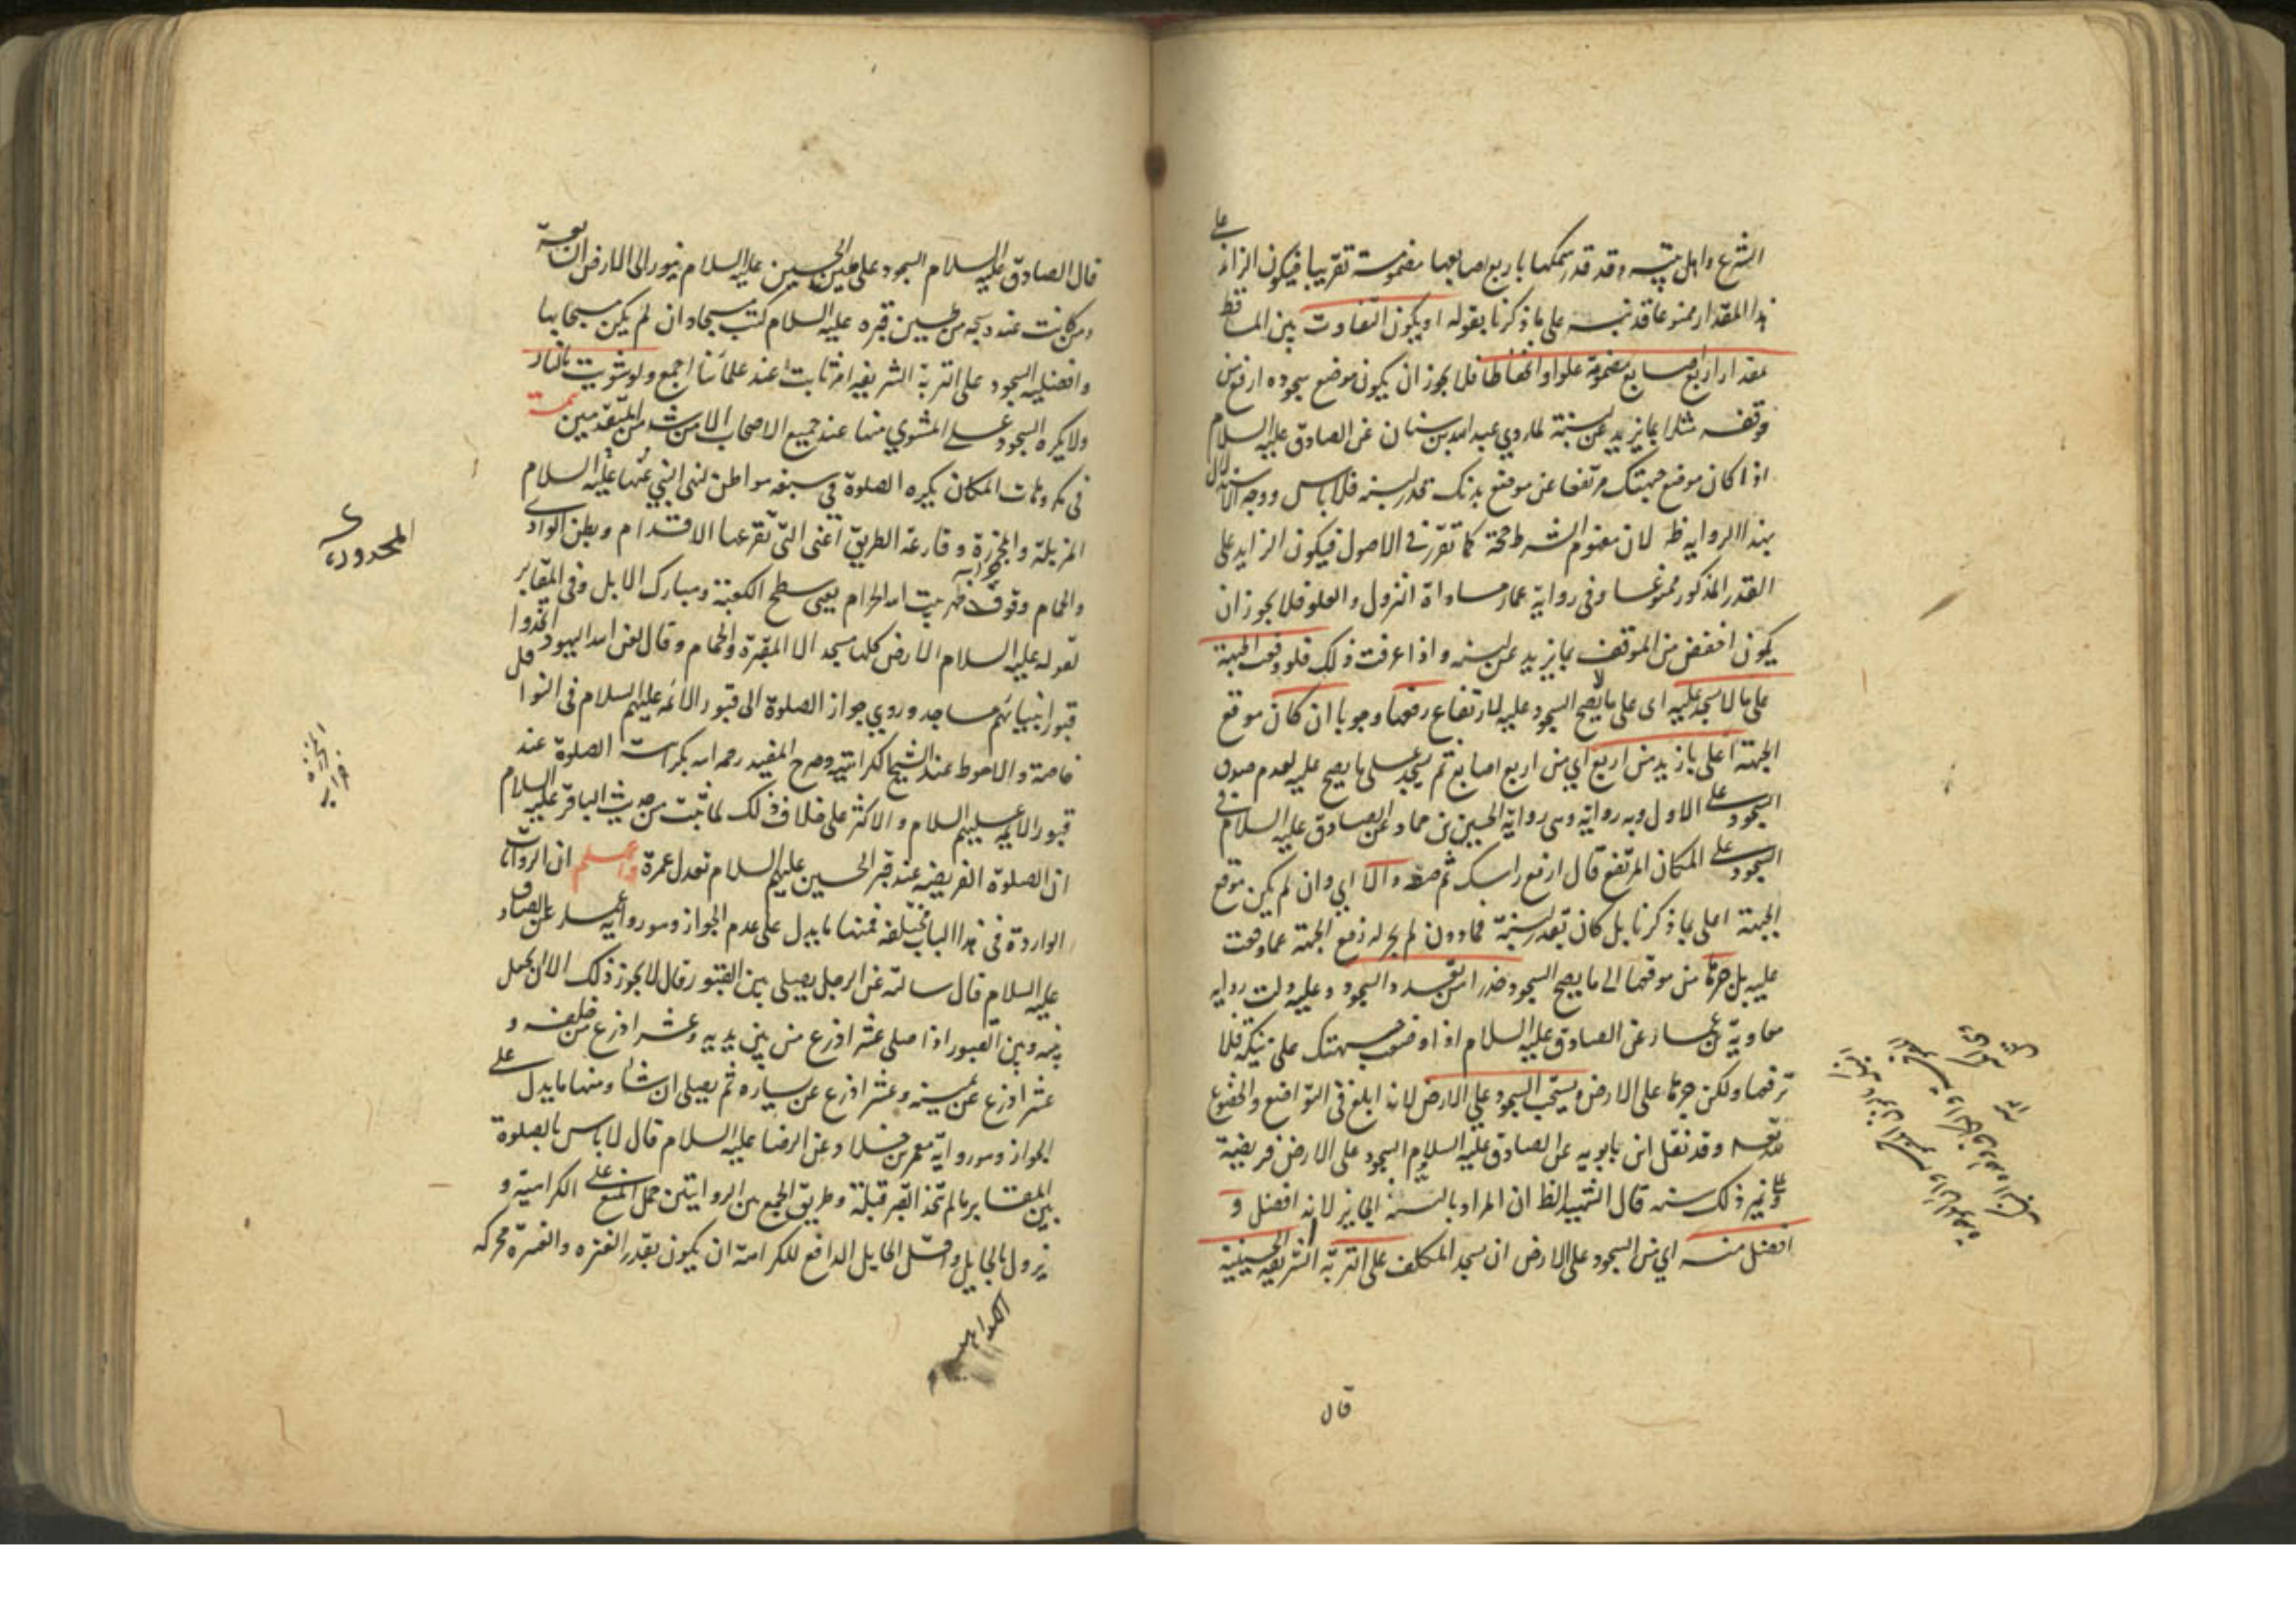 الشرع واهل بيته وقد قدر سمكها باربع اصابعها مضمومة تقريبا فيكون الزائد على
هذا المقدار ممنوعا قد نبه على ما ذكرنا بقوله او يكون التفاوت بين المساقط
مقدار اربع اصابع مضمومة علوا وانخفاظا فلا يجوز ان يكون موضع سجوده ارفع من
موقفه مثلا بما يزيد عن لبنة لما روي عبد الله بن سنان عن الصادق عليه السلام
اذا كان موضع جبهتك مرتفعا عن موضع بدنك قدر لبنه فلا باس ووجه الاستدلال
بهذا الروايه ظ لان مفهوم الشرط حجة كما تقرر في الاصول فيكون الزايد على
القدر المذكور ممنوعا وفي رواية عمار مساواة النزول والعلو فلا يجوز ان
يكون اخفض من الموقف بما يزيد عن لبنه واذا عرفت ذلك فلو وقعت الجبهة
على ما لا يسجد عليه اى على ما لا يصح السجود عليه لارتفاع رفعها وجوبا ان كان موقع
الجبهة اعلى بازيد من اربع اي من اربع اصابع ثم يسجد على ما يصح عليه لعدم صدق
السجود على الاول وبه رواية وهي رواية الحسين بن حماد عن الصادق عليه السلام في
السجود على المكان المرتفع قال ارفع راسك ثم ضعه والا اي وان لم يكن موقع
الجبهة اعلى بما ذكرنا بل كان بقدر لبنة فما دون لم يجز له رفع الجبهة عما وقعت
عليه بل جرها من موقعها الى ما يصح السجود حذرا من تعدد السجود وعليه دلت رواية
معاوية بن عمار عن الصادق عليه السلام اذا وضعت جبهتك على نبكة فلا
ترفعها ولكن جرها على الارض ويستحب السجود على الارض لانه ابلغ في التواضع والخضوع
لله تعه وقد نقل ابن بابويه عن الصادق عليه السلام السجود على الارض فريضة
وعلى غير ذلك سنه قال الشهيد الظ ان المراد بالسنة الجايز لا انه افضل و
افضل منه اي من السجود على الارض ان يسجد المكلف على التربة الشريفه الحسينية
قال
قال الصادق عليه السلام السجود على طين الحسين عليه السلام ينور الى الارض السابعة
ومن كانت عنده سبحه من طين قبره عليه السلام كتب مسبحا وان لم يكن مسبحا بها
وافضليه السجود على التربة الشريفه امر ثابت عند علمائنا اجمع ولو شويت بالنار
ولا يكره السجود على المشوي منها عند جميع الاصحاب الا من شذ من المتقدمين تتمة
في مكروهات المكان يكره الصلوة في سبعه مواطن لنهى النبي عنها عليه السلام
المزبلة والمجزرة وقارعة الطريق اعنى التي تقرعها الاقدام وبطن الوادى
والحمام وفوق ظهر بيت الله الحرام يعنى سطح الكعبة ومبارك الابل وفى المقابر
لقوله عليه السلام الارض كلها مسجد الا المقبرة والحمام وقال لعن الله اليهود اتخذوا
قبور انبيائهم مساجد وروي جواز الصلوة الى قبور الائمه عليهم السلام فى النوافل
خاصة والاحوط عند الشيخ الكراهية وصرح المفيد رحمه الله بكراهة الصلوة عند
قبور الائمه عليهم السلام والاكثر على خلاف ذلك لما ثبت من حديث الباقر عليه السلام
ان الصلوة الفريضه عند قبر الحسين عليهم السلام تعدل عمرة واعلم ان الروايات
الواردة فى هذا الباب مختلفه فمنها ما يدل على عدم الجواز وهو رواية عمار عن الصادق
عليه السلام قال سالته عن الرجل يصلى بين القبور قال لا يجوز ذلك الا ان يجعل
بينه وبين القبور اذا صلى عشر اذرع من بين يديه وعشر اذرع من خلفه و
عشر اذرع عن يمينه وعشر اذرع عن يساره ثم يصلى ان شاء ومنها ما يدل على
الجواز وهو رواية معمر بن خلاد عن الرضا عليه السلام قال لا باس بالصلوة
بين المقابر ما لم يتخذ القبر قبلة وطريق الجمع بين الروايتين حمل المنع على الكراهية و
يزول بالحايل واقل الحايل الدافع للكراهة ان يكون بقدر العنزه والعنزة محركه